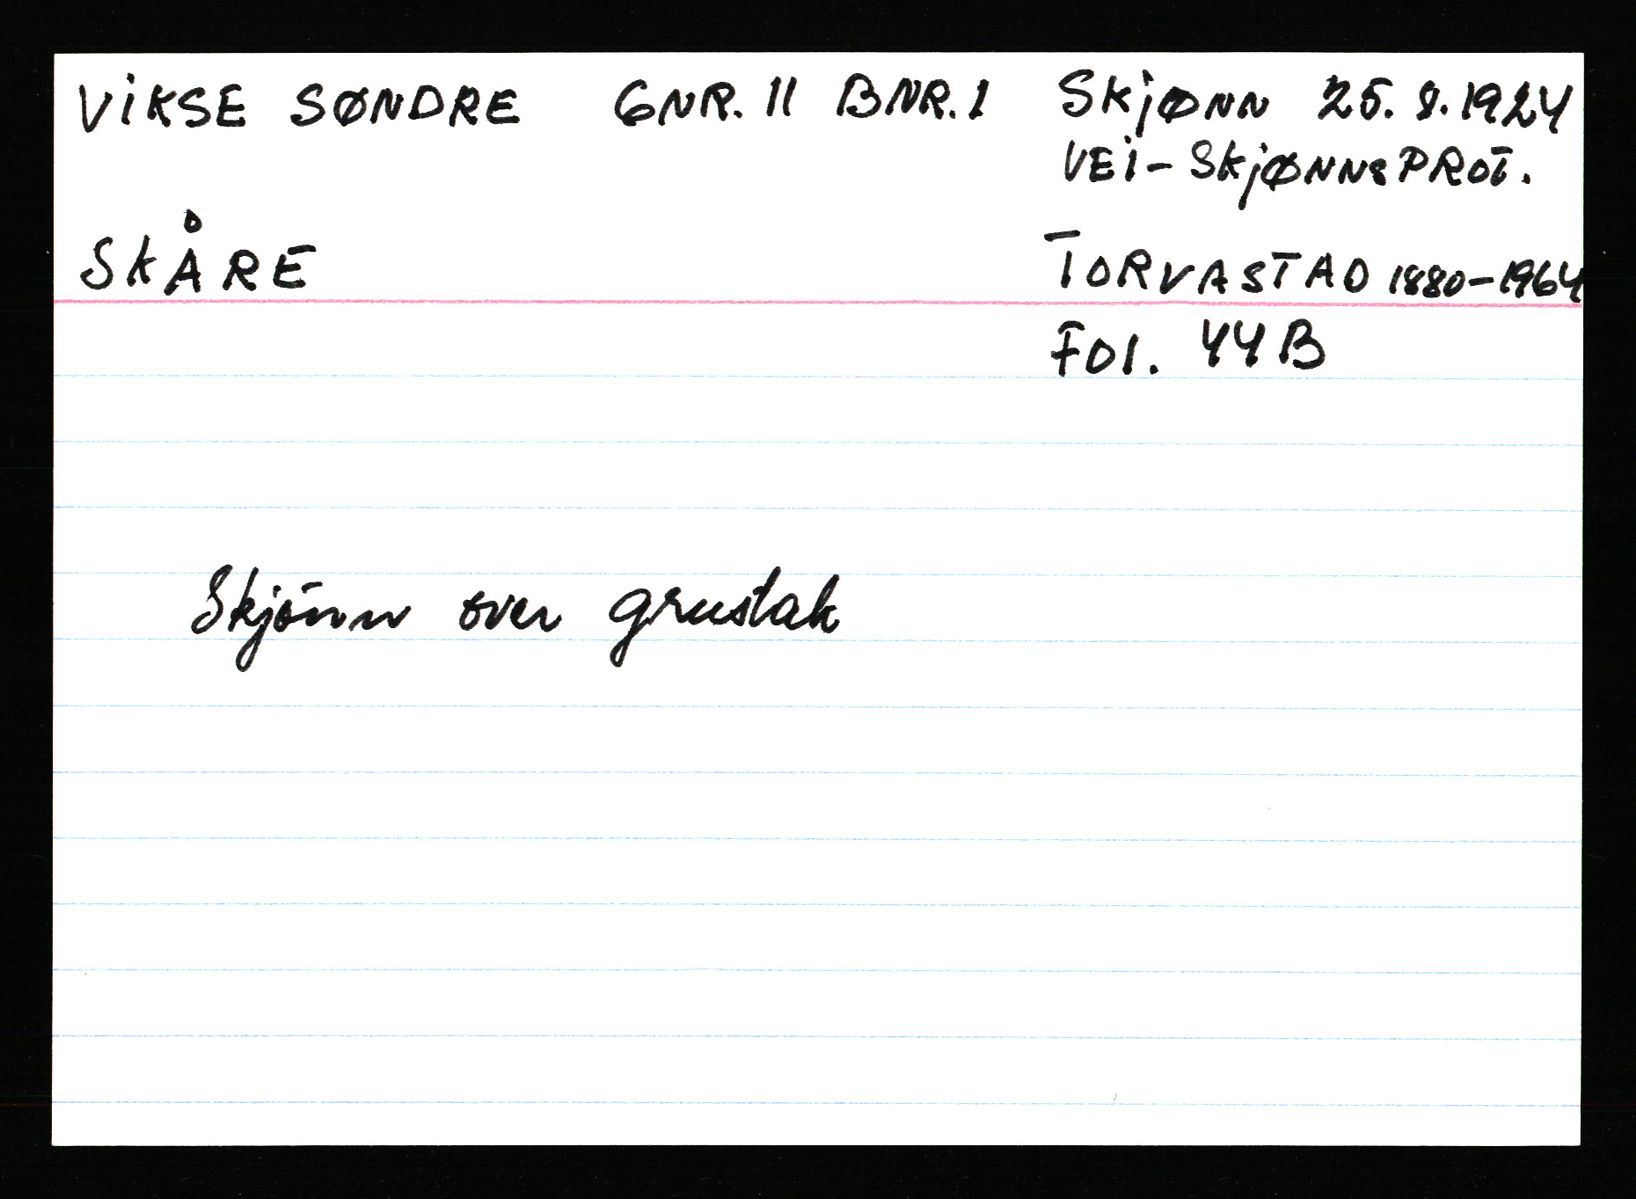 VIKSE SØNDRE GNR. 11 BNR. 1 SKJØNN 25. 8. 1924
VEI-SKJØNNSPROT.
SKÅRE TORVASTAD 1880-1964
FOL. 44B
Skjønn over grustak